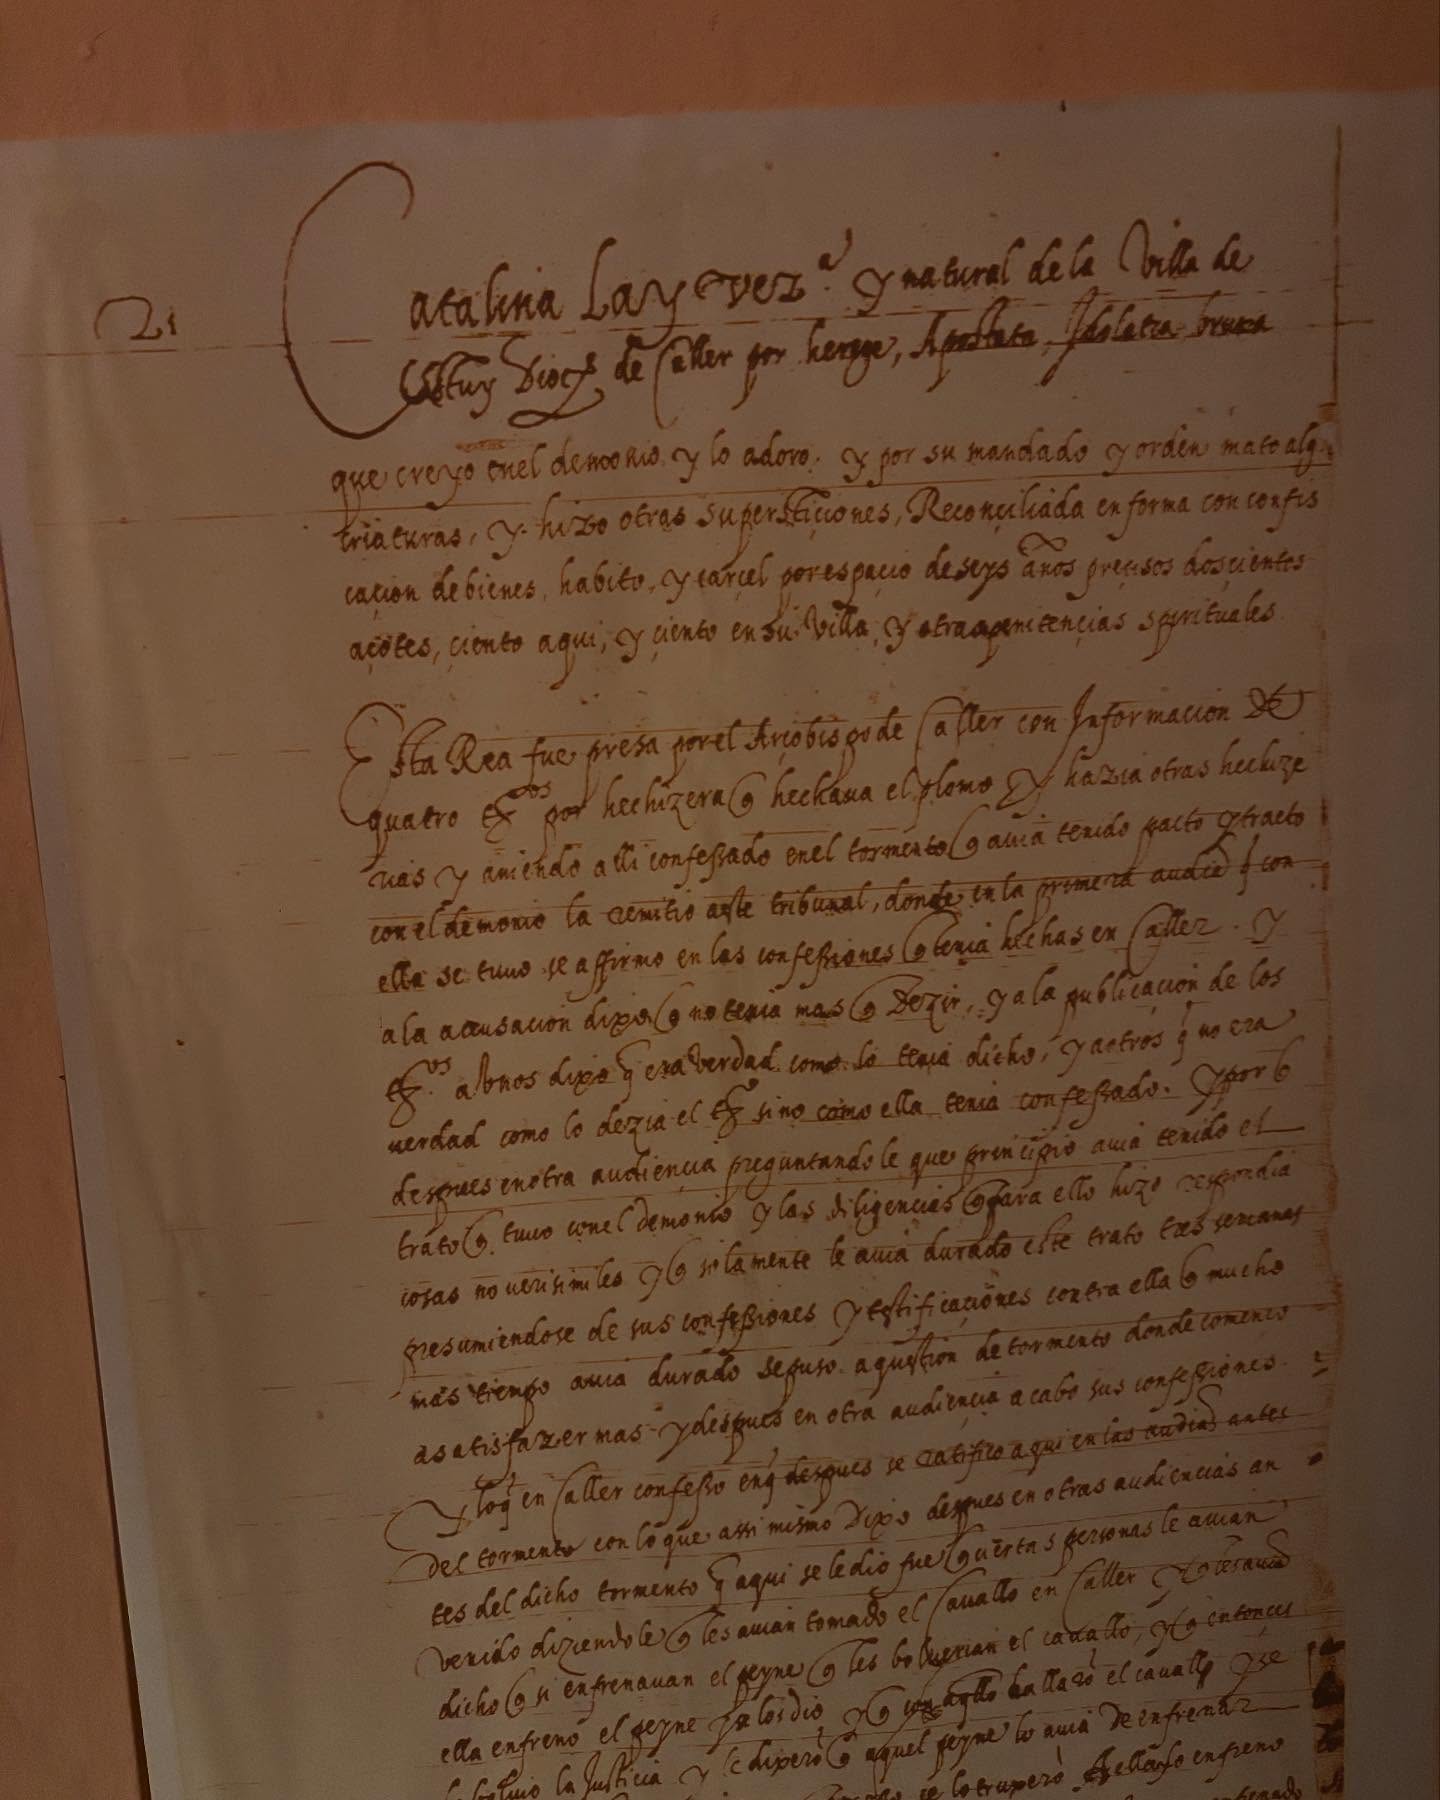 21
Catalina Lay vez.ª y natural de la Villa de
Estuy Dioçs de Caller por herege, Apostata, Idolatra bruxa
que creyo enel demonio y lo adoro. y por su mandado y orden mato alg.
criaturas, y hizo otras superstiçiones, Reconçiliada en forma con confis
caçion de bienes, habito, y carçel por espaçio de seys años preçisos dosçientos
açotes, çiento aqui, y çiento en su Villa, y otras penitençias spirituales
Esta Rea fue presa por el Arçobispo de Caller con Informacion de
quatro tgos por hechizera q hechaua el plomo y hazia otras hechize
rias y auiendo alli confessado enel tormento q auia tenido pacto y tracto
con el demonio la remitio aeste tribunal, donde en la primera audiẽ q con
ella se tuuo se affirmo en las confessiones q tenia hechas en Caller. Y
a la acusaçion dixo q no tenia mas q Dezir, y a la publicaçion de los
tgos a Unos dixo q era Verdad como lo tenia dicho, y a otros q no era
verdad como lo dezia el tgo sino como ella tenia confessado. Y por q
despues en otra audiençia preguntandole que prinçipio auia tenido el
trato q tuuo con el Demonio y las diligençias q para ello hizo respondia
cosas no verisimiles y q solamente le auia durado este trato tres semanas
presumiendose de sus confessiones y testificaçiones contra ella q mucho
mas tiempo auia durado se puso a question de tormento donde comenco
a satisfazer mas y despues en otra audiençia acabo sus confessiones
Y lo q en Caller confesso en q despues se ratifico aqui en las audiãs antes
Del tormento con lo que assi mismo Dixo despues en otras audiençias an
tes del dicho tormento q aqui se le dio fue q çiertas personas le auian
venido diziendole q les auian tomado el Cauallo en Caller y q les auia
dicho q si enfrenauan el peyne q les boluerian el cauallo, y q entonces
ella enfreno el peyne y se los dio y q con aqllo hallarõ el cauallo y se
la Justicia y le dixerõ q aquel peyne lo auia De enfrenar
se lo truxerõ enfreno